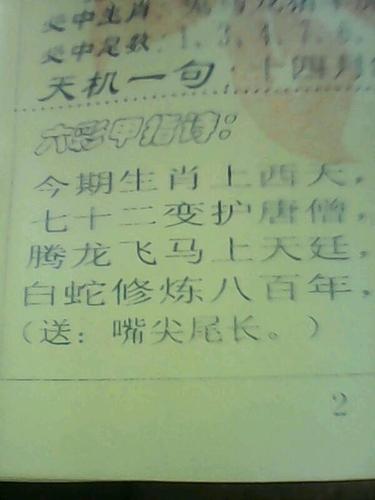 中生肖
中尾数:1、3、4、7、8、
天机一句：十四月
六彩 诗：
今期生肖上西天，
七十二变护唐僧，
腾龙飞马上天廷，
白蛇修炼八百年，
(送：嘴尖尾长。)
2